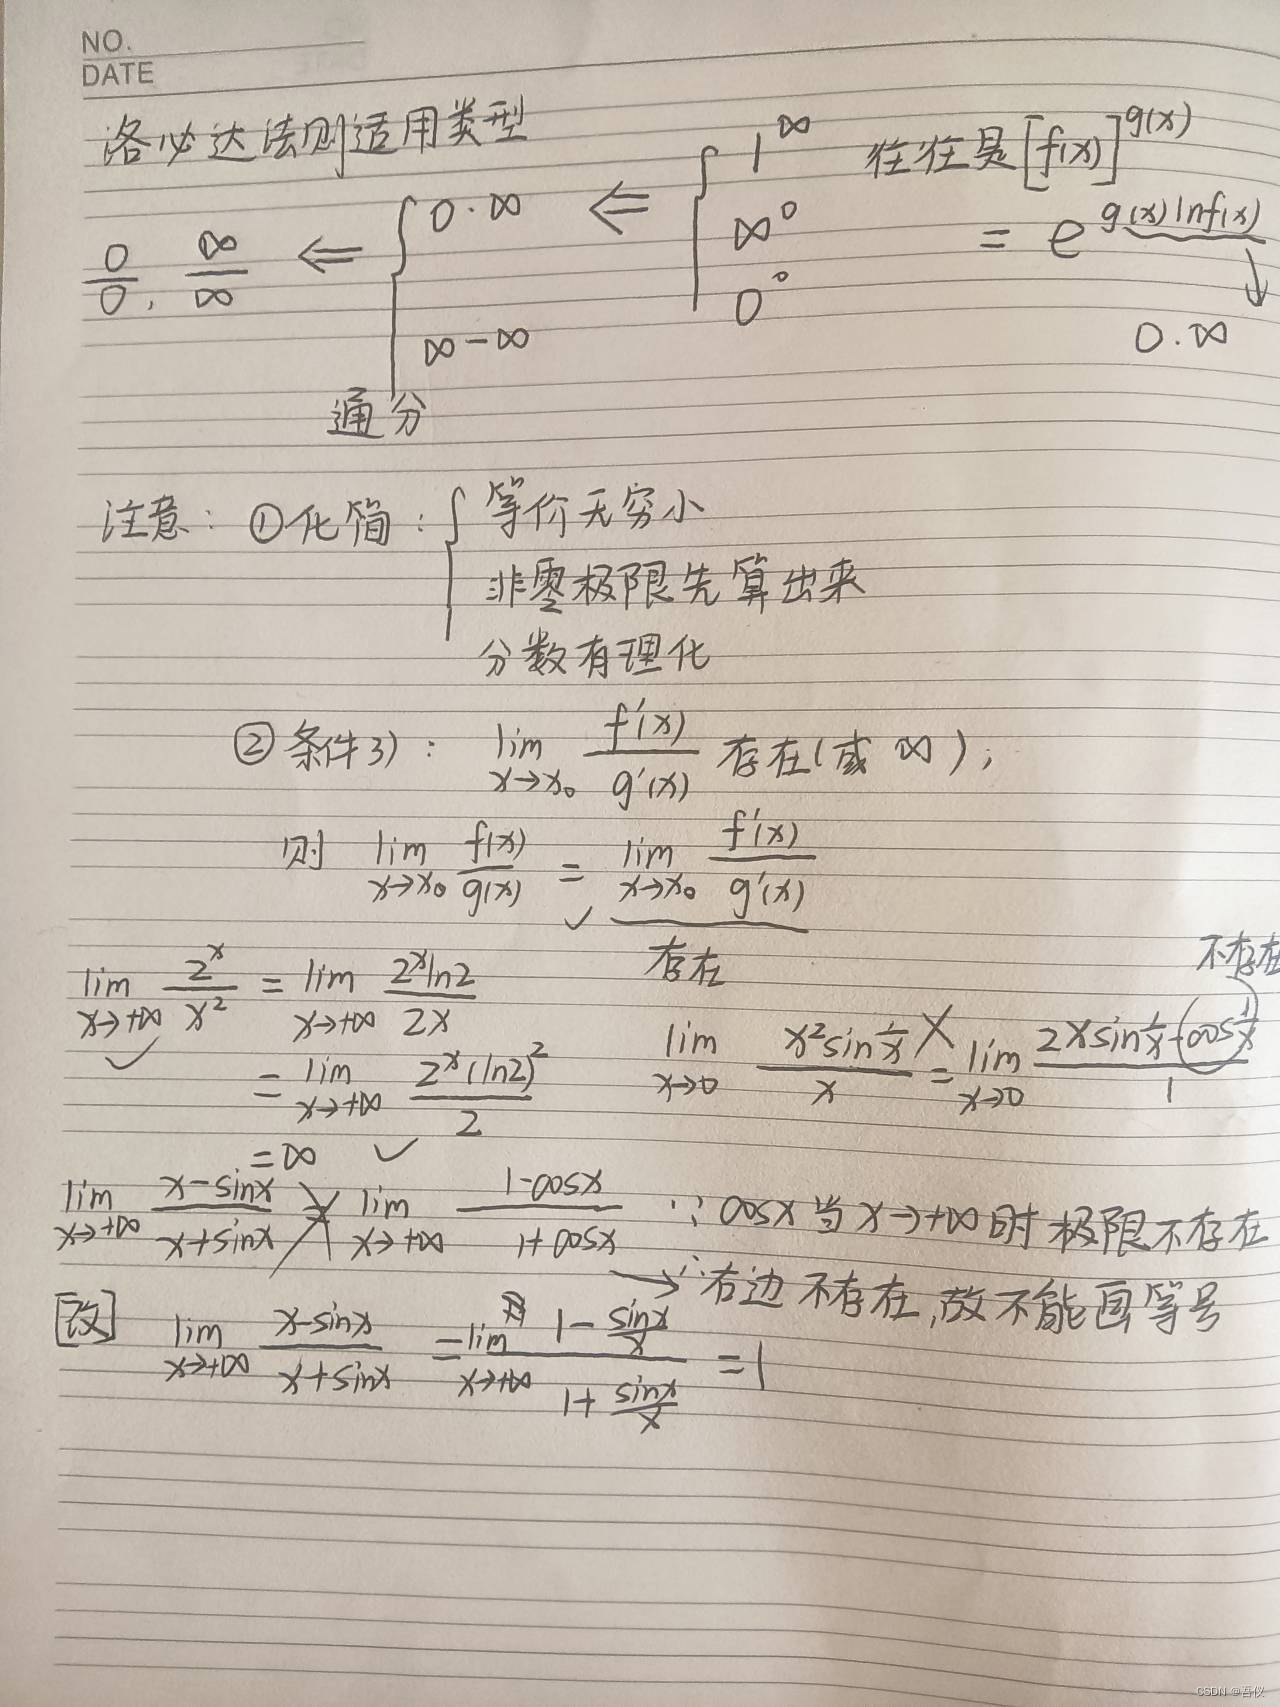 NO.
DATE
洛必达法则适用类型
0/0, ∞/∞ ⇐ { 0·∞ ⇐ { 1^∞ 往往是[f(x)]^g(x)
∞^0 = e^(g(x)lnf(x))
0^0 ↓
∞-∞ 0·∞
通分
注意: ①化简: { 等价无穷小
非零极限先算出来
分数有理化
②条件3): lim x→x₀ f'(x)/g'(x) 存在(或∞);
则 lim x→x₀ f(x)/g(x) = lim x→x₀ f'(x)/g'(x)
✓ 存在
lim x→+∞ 2^x/x² = lim x→+∞ 2^x ln2/2x
✓ = lim x→+∞ 2^x(ln2)²/2
=∞ ✓
不存在
lim x→0 x²sin(1/x)/x ╳ = lim x→0 (2xsin(1/x)-cos(1/x))/1
lim x→+∞ (x-sinx)/(x+sinx) ╳ lim x→+∞ (1-cosx)/(1+cosx) ∵cosx当x→+∞时极限不存在
→ ∴右边不存在,故不能画等号
[改] lim x→+∞ (x-sinx)/(x+sinx) = lim x→+∞ (1-sinx/x)/(1+sinx/x) =1
CSDN @吾仪